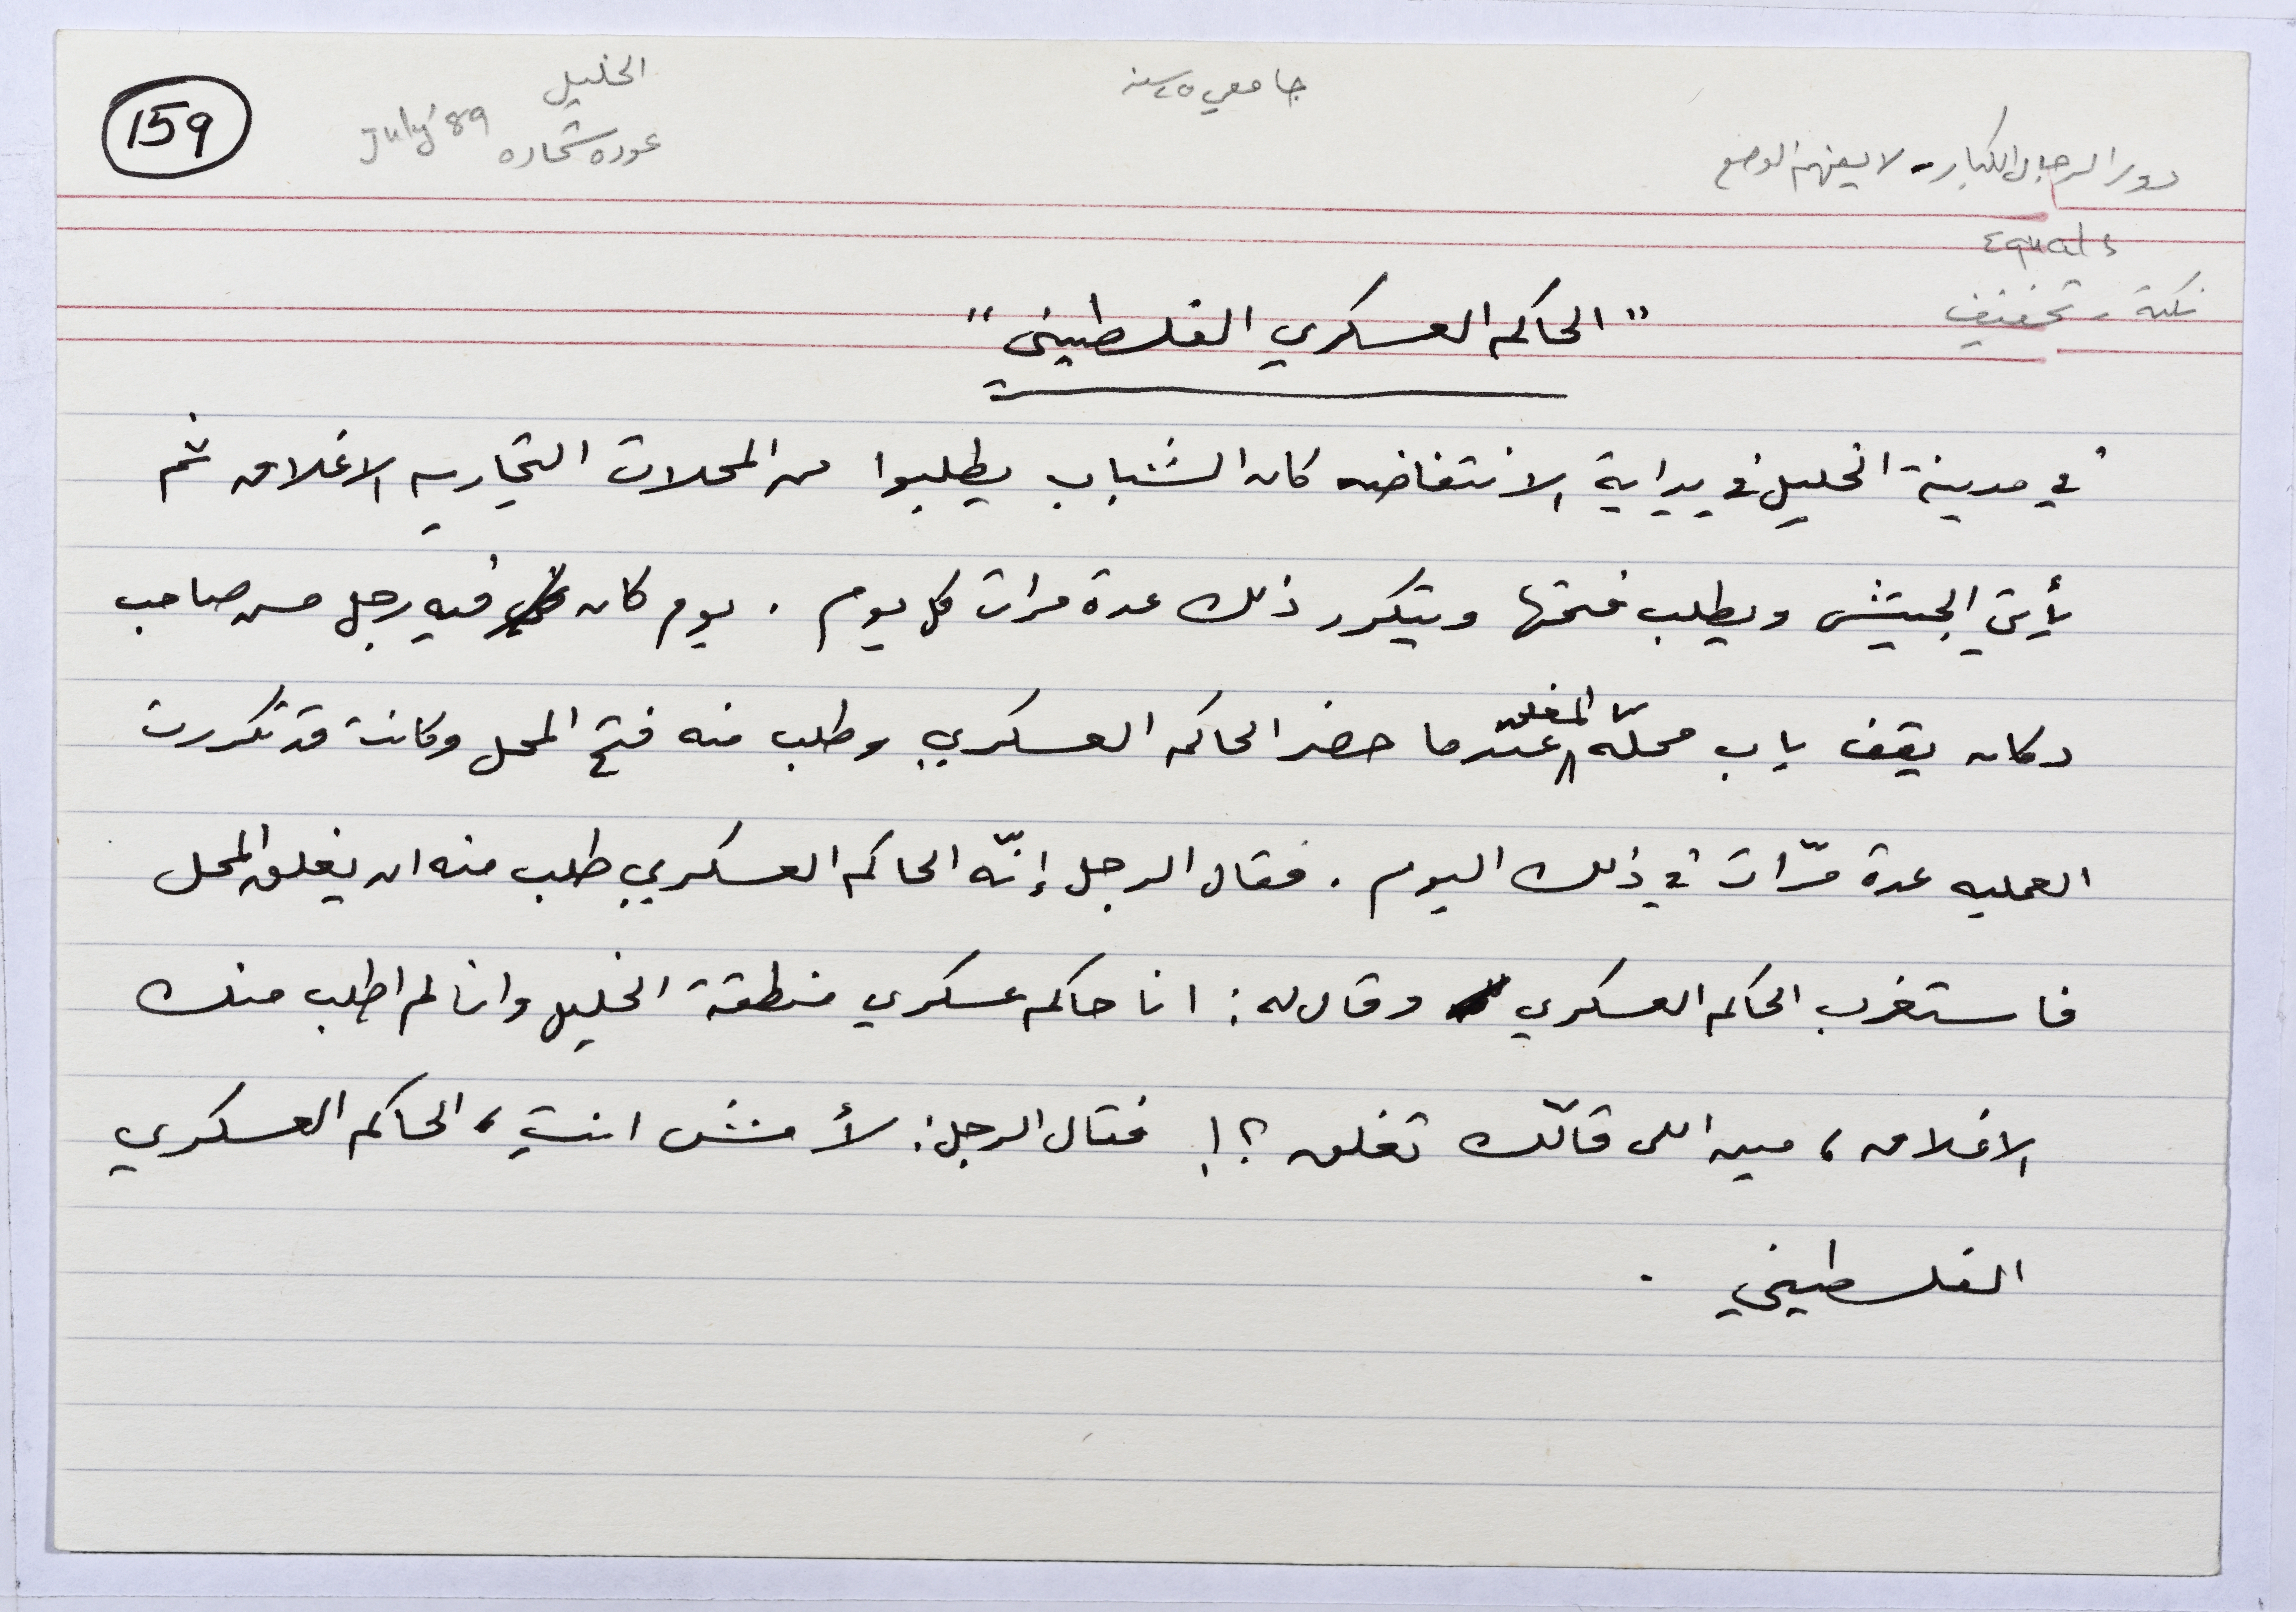 159
الخليل
عوده شحاده July '89
جامعي ٢٥ سنة
دور الرجال الكبار - لا يعنيهم الوضع
Equals
نكتة - تخفيف
"الحاكم العسكري الفلسطيني"
في مدينة الخليل في بداية الانتفاضه كان الشباب يطلبوا من المحلات التجاريه الاغلاق ثم
يأتي الجيش ويطلب فتحها ويتكرر ذلك عدة مرات كل يوم . يوم كان فيه رجل مسن صاحب
دكان يقف باب محلّه المغلق عندما حضر الحاكم العسكري وطلب منه فتح المحل وكانت قد تكررت
العمليه عدة مرّات في ذلك اليوم . فقال الرجل إنّه الحاكم العسكري طلب منه ان يغلق المحل
فاستغرب الحاكم العسكري وقال له : انا حاكم عسكري منطقة الخليل وانا لم اطلب منك
الاغلاق ، مين اللي قالّك تغلق ؟! فقال الرجل : لأ مش انت ، الحاكم العسكري
الفلسطيني .